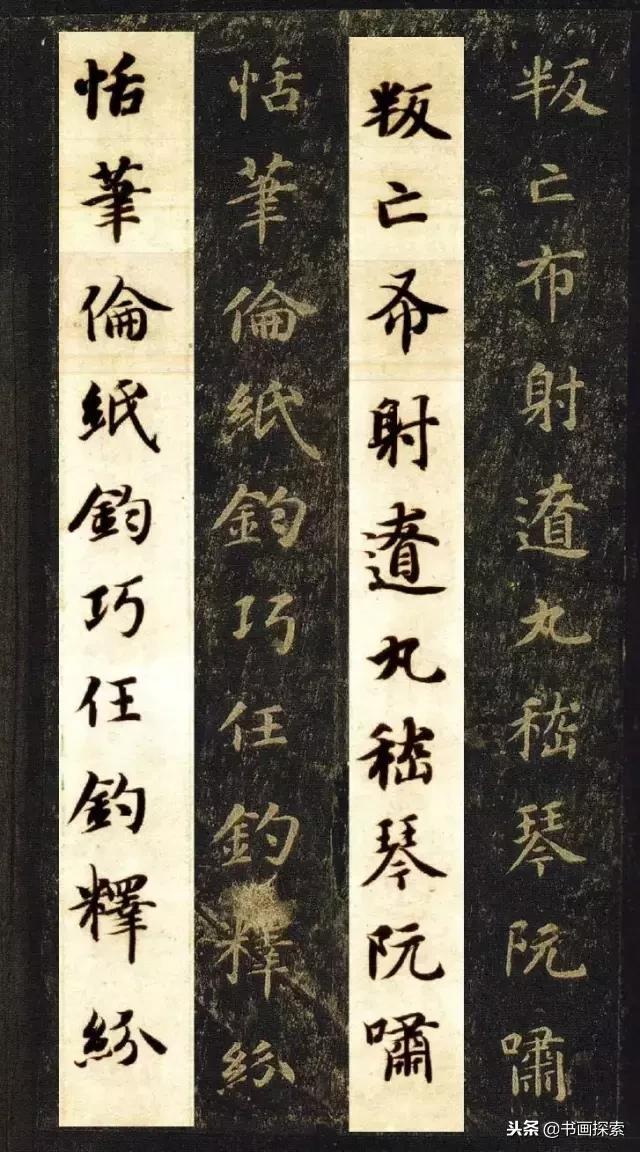 叛亡布射遼丸嵇琴阮嘯
叛亡布射遼丸嵇琴阮嘯
恬筆倫紙鈞巧任釣釋紛
恬筆倫紙鈞巧任釣釋紛
头条 @书画探索